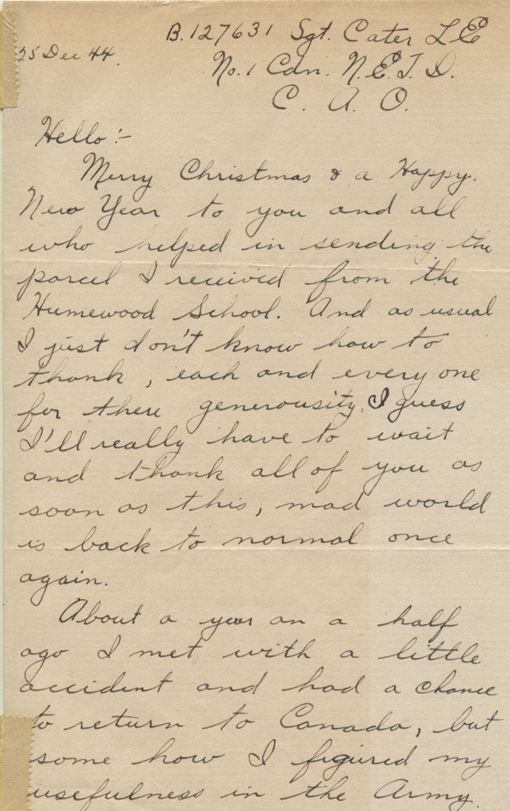 B.127631 Sgt. Cater L E
25 Dec 44.
No. 1 Cdn. N.E.T.D.
C. A. O.
Hello:-
Merry Christmas & a Happy.
New Year to you and all
who helped in sending the
parcel I received from the
Humewood School. And as usual
I just don't know how to
thank, each and every one
for there generousity, I guess
I'll really have to wait
and thank all of you as
soon as this, mad world
is back to normal once
again.
About a year an a half
ago I met with a little
accident and had a chance
to return to Canada, but
some how I figured my
usefulness in the Army.